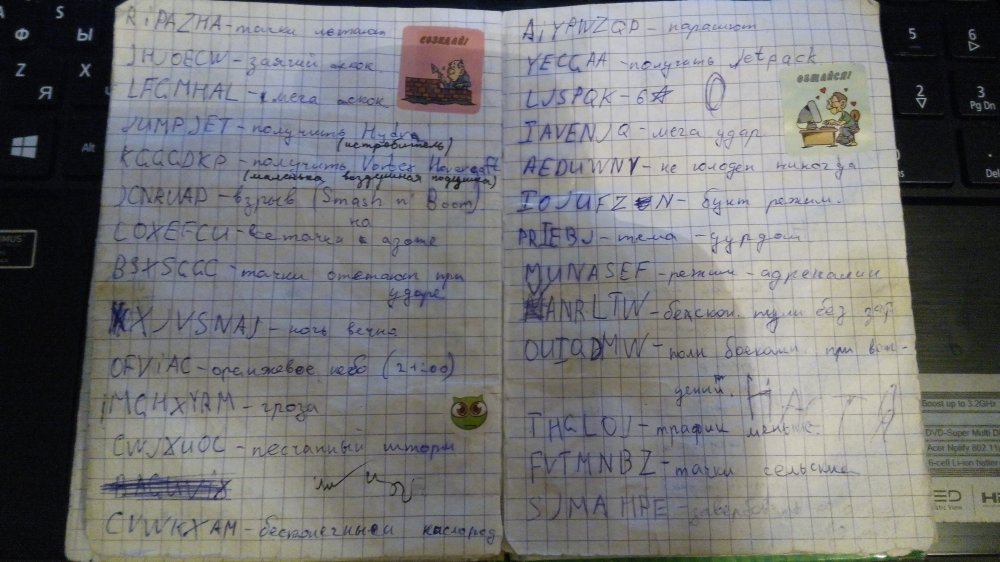 RiPAZHA - тачки летают
СОЗИДАЙ!
JHJOECW - заячий скок.
LFGMHAL - мега скок.
JUMPJET - получить Hydra
(истребитель)
KGGGDKP - получить Vortex Hovercraft
(маленькая воздушная подушка)
JCNRUAD - взрыв (Smash n' Boom)
COXEFGU - все тачки на азоте
BSXSGGC - тачки отлетают при
ударе
XJVSNAJ - ночь вечна
OFViAC - оранжевое небо (21:00)
MGHXYRM - гроза
CWJXUOC - песчаный шторм
CVWKXAM - бесконечный кислород
AiYPWZQP - парашют
YECGAA - получить Jetpack
ОБЩАЙСЯ!
LJSPQK - 6☆
IAVENJQ - мега удар
AEDUWNV - не голоден никогда
IOJUFZN - бунт режим.
PRIEBJ - тема - дурдом
MUNASEF - режим - адреналин
WANRLTW - бескон. пули без
OUIQDMW - полн боеками при вож-
дений.
НАСТЯ
THGLOJ - трафик меньше.
FVTMNBZ - тачки сельские
SJMAHPE -
Ф
Ы
Z
X
Я
Alt
5
6
2
3
Pg Dn
Boost up to 3.2GHz
DVD-Super Multi
Acer Nplify 802.11
6-cell Li-ion